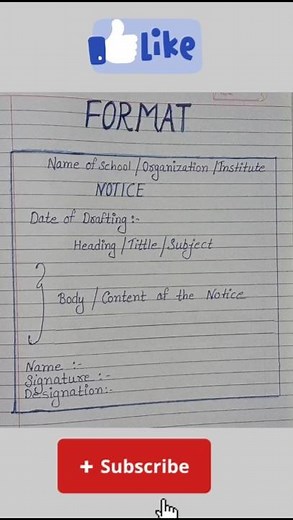 Like
FORMAT
Name of School / Organization / Institute
NOTICE
Date of Drafting :-
Heading / Tittle / Subject
Body / Content of the Notice
Name :-
Signature :-
Designation:-
+ Subscribe